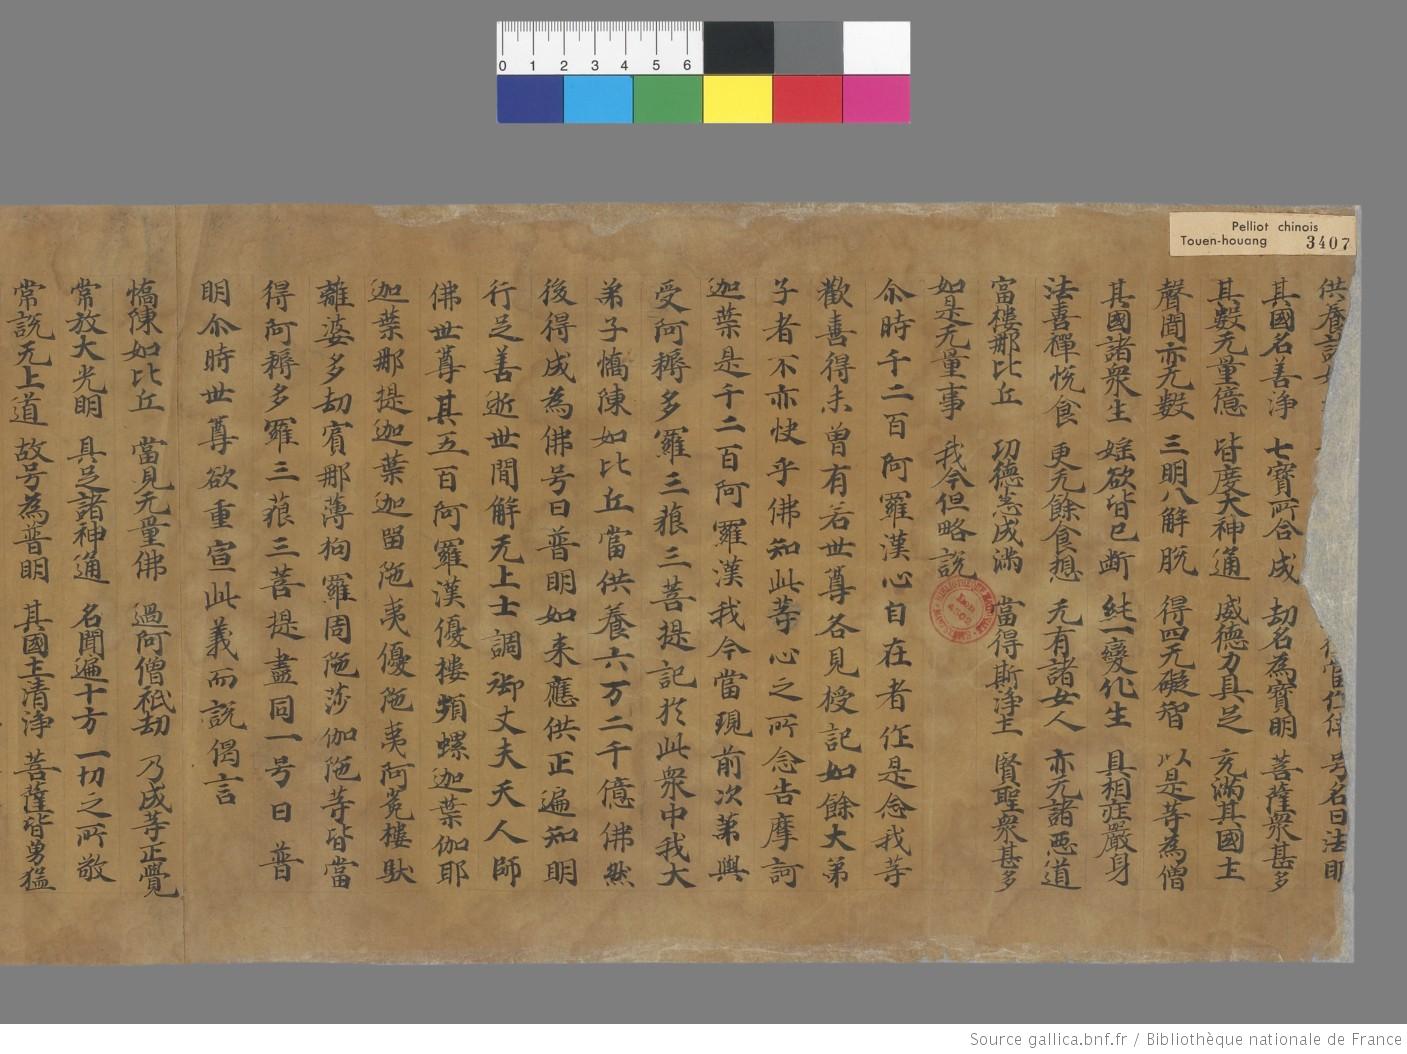 0 1 2 3 4 5 6
Pelliot chinois
Touen-houang 3407
供養諸 号名曰法明
其國名善淨 七寶所合成 劫名為寶明 菩薩衆甚多
其數无量億 皆度大神通 威德力具足 充滿其國土
聲聞亦无數 三明八解脫 得四无礙智 以是等為僧
其國諸衆生 婬欲皆已断 純一變化生 具相莊嚴身
法喜禪悅食 更无餘食想 无有諸女人 亦无諸惡道
富樓那比丘 功德悉成滿 當得斯淨土 賢聖衆甚多
如是无量事 我今但略說
尒時千二百阿羅漢心自在者作是念我等
歡喜得未曾有若世尊各見授記如餘大弟
子者不亦快乎佛知此等心之所念告摩訶
迦葉是千二百阿羅漢我今當現前次第與
受阿耨多羅三藐三菩提記於此衆中我大
弟子憍陳如比丘當供養六万二千億佛然
後得成為佛号曰普明如来應供正遍知明
行足善逝世間解无上士調御丈夫天人師
佛世尊其五百阿羅漢優樓頻螺迦葉伽耶
迦葉那提迦葉迦留陁夷優陁夷阿㝹樓馱
離婆多劫賓那薄拘羅周陁莎伽陁等皆當
得阿耨多羅三藐三菩提盡同一号曰普
明尒時世尊欲重宣此義而說偈言
憍陳如比丘 當見无量佛 過阿僧祇劫 乃成等正覺
常放大光明 具足諸神通 名聞遍十方 一切之所敬
常說无上道 故号為普明 其國土清淨 菩薩皆勇猛
Source gallica.bnf.fr / Bibliothèque nationale de France